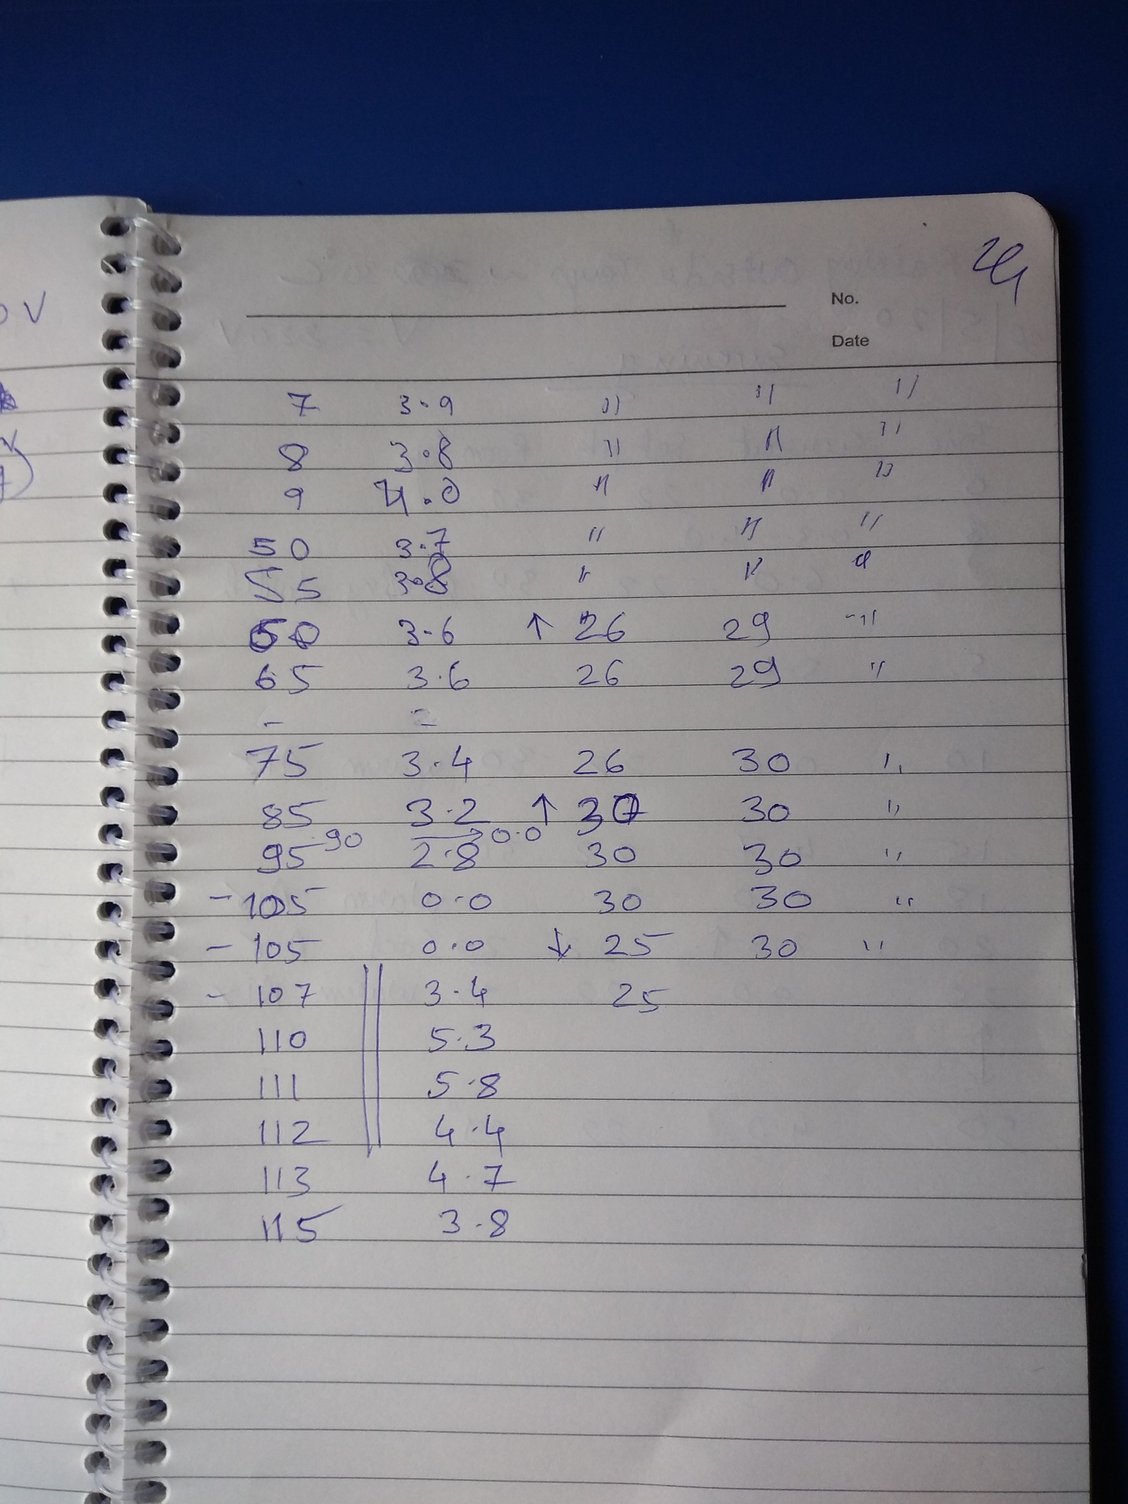 24
No.
Date
7 3.9 " " "
8 3.8 " " "
9 4.0 " " "
50 3.7 " " "
55 3.8 " " "
60 3.6 ↑ 26 29 -"
65 3.6 26 29 "
- =
75 3.4 26 30 "
85 3.2 ↑ 30 30 "
90 → 0.0
95 2.8 30 30 "
- 105 0.0 30 30 "
- 105 0.0 ↓ 25 30 "
- 107 3.4 25
110 5.3
111 5.8
112 4.4
113 4.7
115 3.8